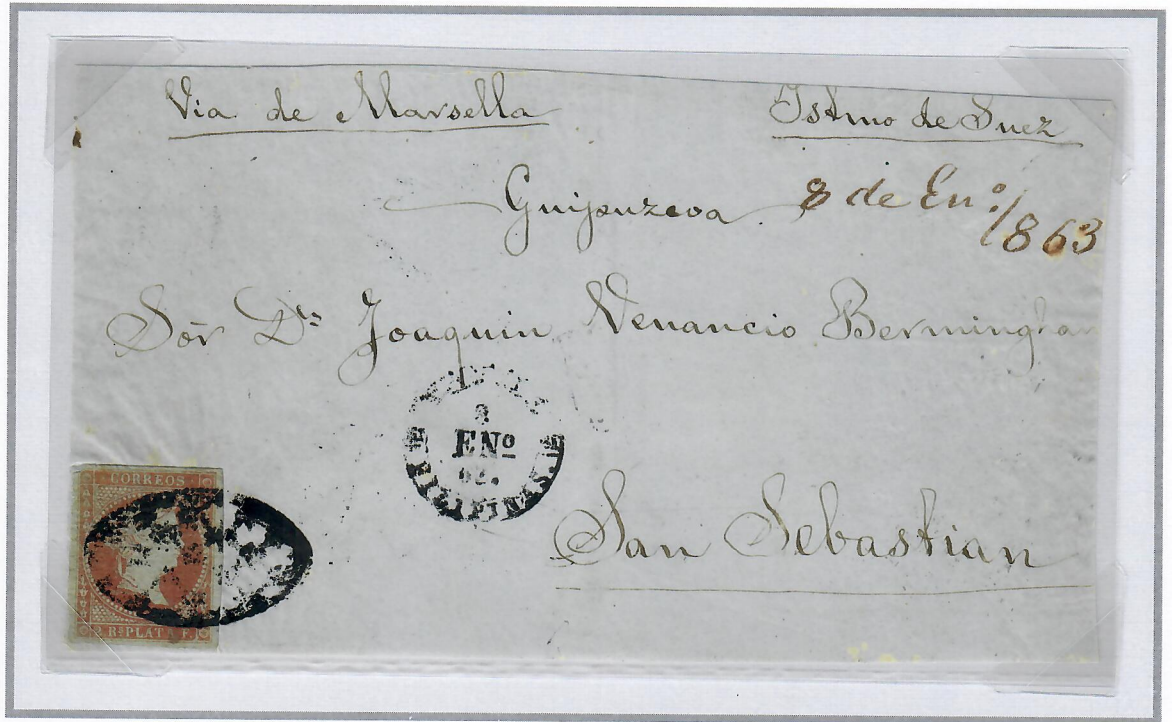 Via de Marsella Istmo de Suez
Guipuzcoa 8 de En.º/863
Sōr Dⁿ Joaquin Venancio Bermingham
ENº
FILIPINAS.
San Sebastian
CORREOS
2 Rˢ PLATA F.